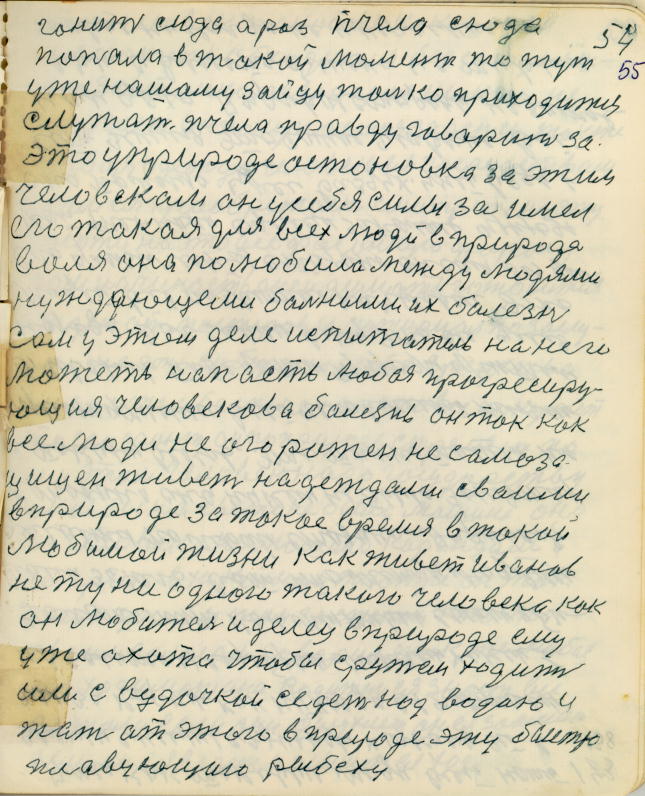 гонит сюда а раз пчела сюда
54
попала в такой момент то тут
55
уже нашаму зайцу толко приходится
служат. пчела правду говорит за.
это у природе остоновка за этим
человекам он усебя силы за имел
его такая для всех людй в природа
воля она полюбила между людями
нуждающеми балными их балезн
сам у этом деле испытатель на него
можеть напасть любая прогресиру-
ющия человекова балезнь он так как
все люди не огорожен не самоза-
щищен живет надеждами сваими
в природе за такое время в такой
любимой жизни как живет иванов
нету ни одного такого человека как
он любител и делец в природе ему
уже охота чтобы с ружем ходит
или с вудочкой седет над водаю и
ждат от этого в природе эту быстро
плавующию рыбёху